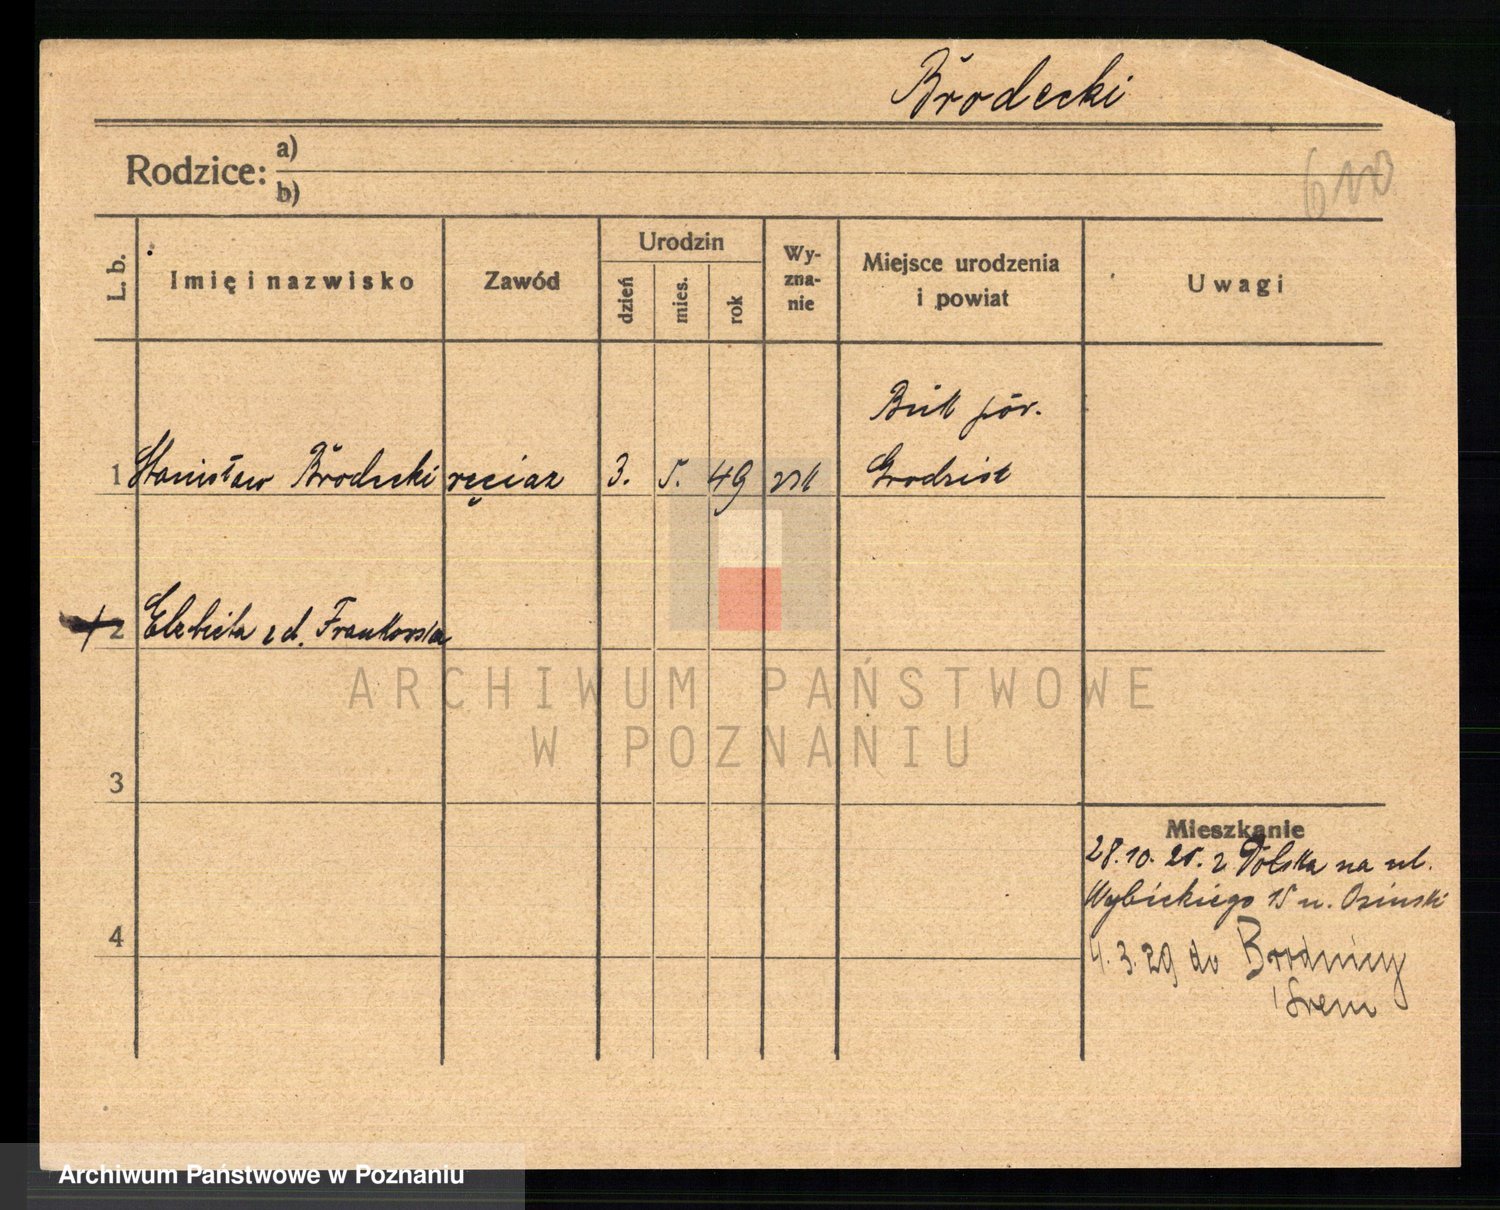 Brodecki
Rodzice: a)
b)
610
L. b.
Imię i nazwisko
Zawód
Urodzin
dzień
mies.
rok
Wy-
zna-
nie
Miejsce urodzenia
i powiat
Uwagi
Buk pow.
1 Stanisław Brodecki 3. 5. 49 rzk Grodzisk
2 Elżbieta zd. Frankowska
ARCHIWUM PAŃSTWOWE
W POZNANIU
3
Mieszkanie
28.10.25. z Polska na ul.
Wybickiego 15 u. Osinski
4
4.3.29 do Brodnicy
Śrem
Archiwum Państwowe w Poznaniu